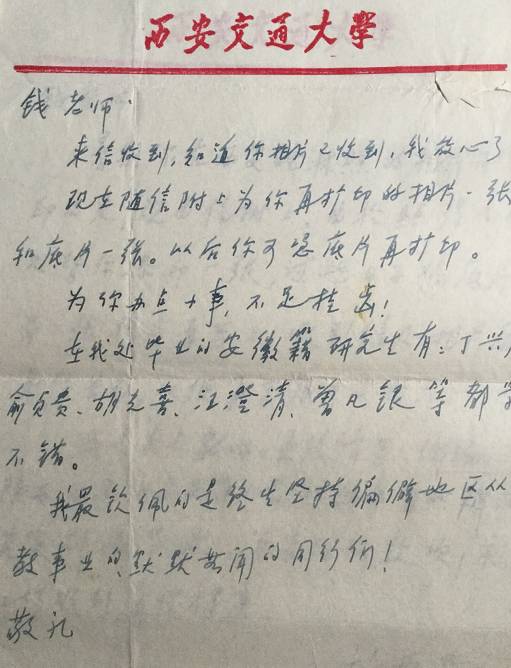 西安交通大學
钱老师:
来信收到,知道你相片已收到,我放心了
现在随信附上为你再扩印的相片一张
和底片一张。以后你可忽底片再扩印。
为你办点小事,不足挂齿!
在我处毕业的安徽籍研究生有:丁兴
俞贞贵、胡元喜、江澄清、曾凡银等都学
不错。
我最钦佩的是终生坚持偏僻地区从
教事业的默默无闻的同行们!
敬礼